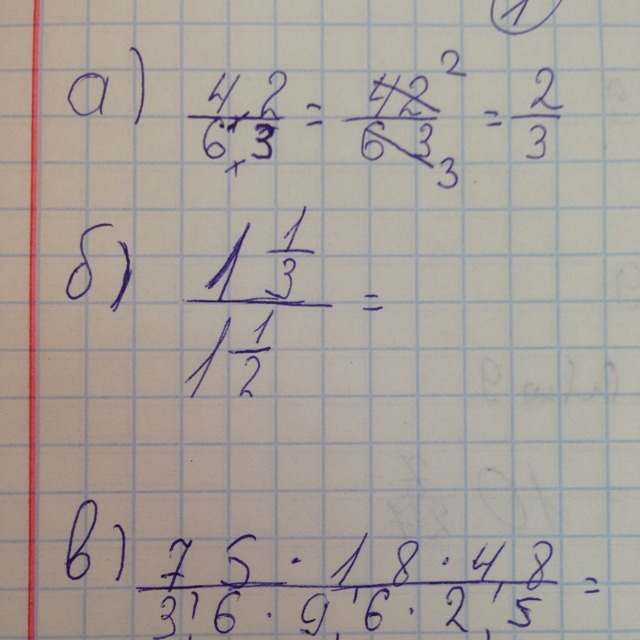 1
а) 4,2 / 6,3 = 42 / 63 = 2 / 3
б) 1 1/3 / 1 1/2 =
в) 7 5 · 1 8 · 4 8 / 3,6 · 9,6 · 2,5 =